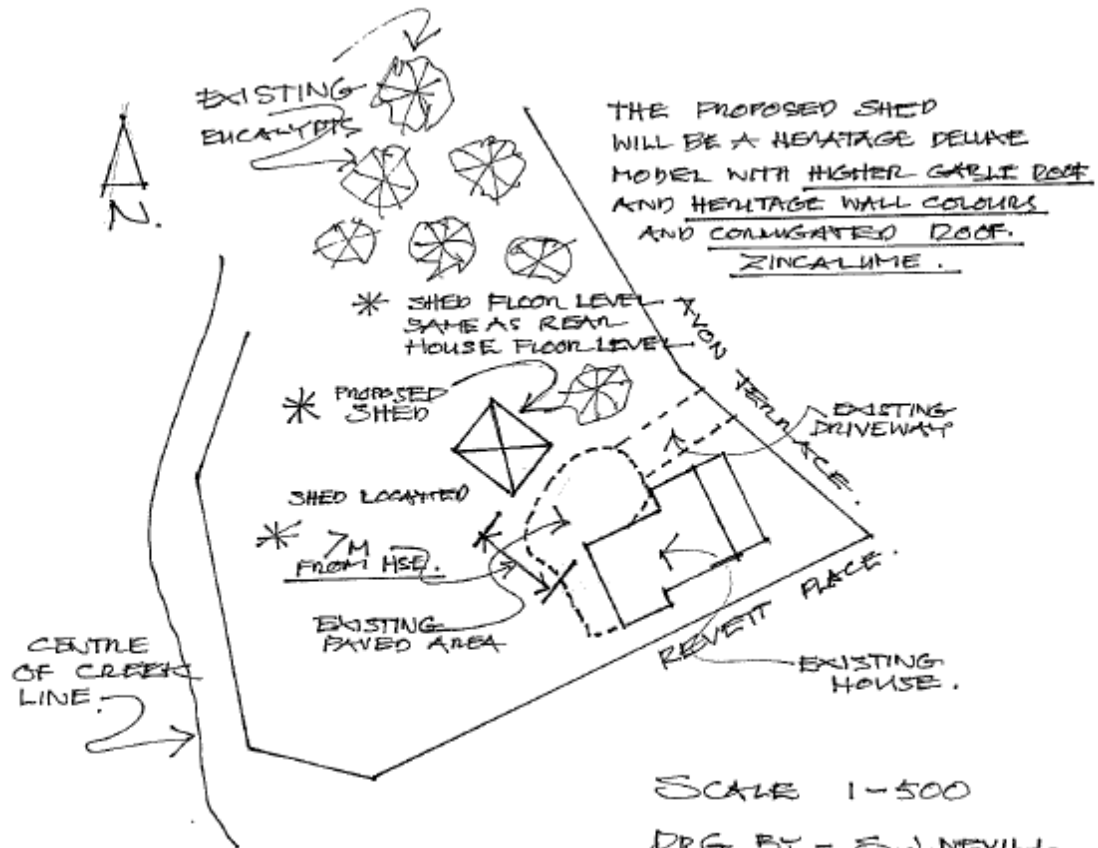 EXISTING
EUCALYPTS
N.
THE PROPOSED SHED
WILL BE A HERITAGE DELUXE
MODEL WITH HIGHER GABLE ROOF
AND HERITAGE WALL COLOURS
AND CORRUGATED ROOF.
ZINCALUME.
* SHED FLOOR LEVEL
SAME AS REAR
HOUSE FLOOR LEVEL
AVON TERRACE.
* PROPOSED
SHED
EXISTING
DRIVEWAY
SHED LOCATED
* 7M
FROM HSE.
EXISTING
PAVED AREA
REVETT PLACE.
CENTRE
OF CREEK
LINE.
EXISTING
HOUSE.
SCALE 1-500
DRG BY -